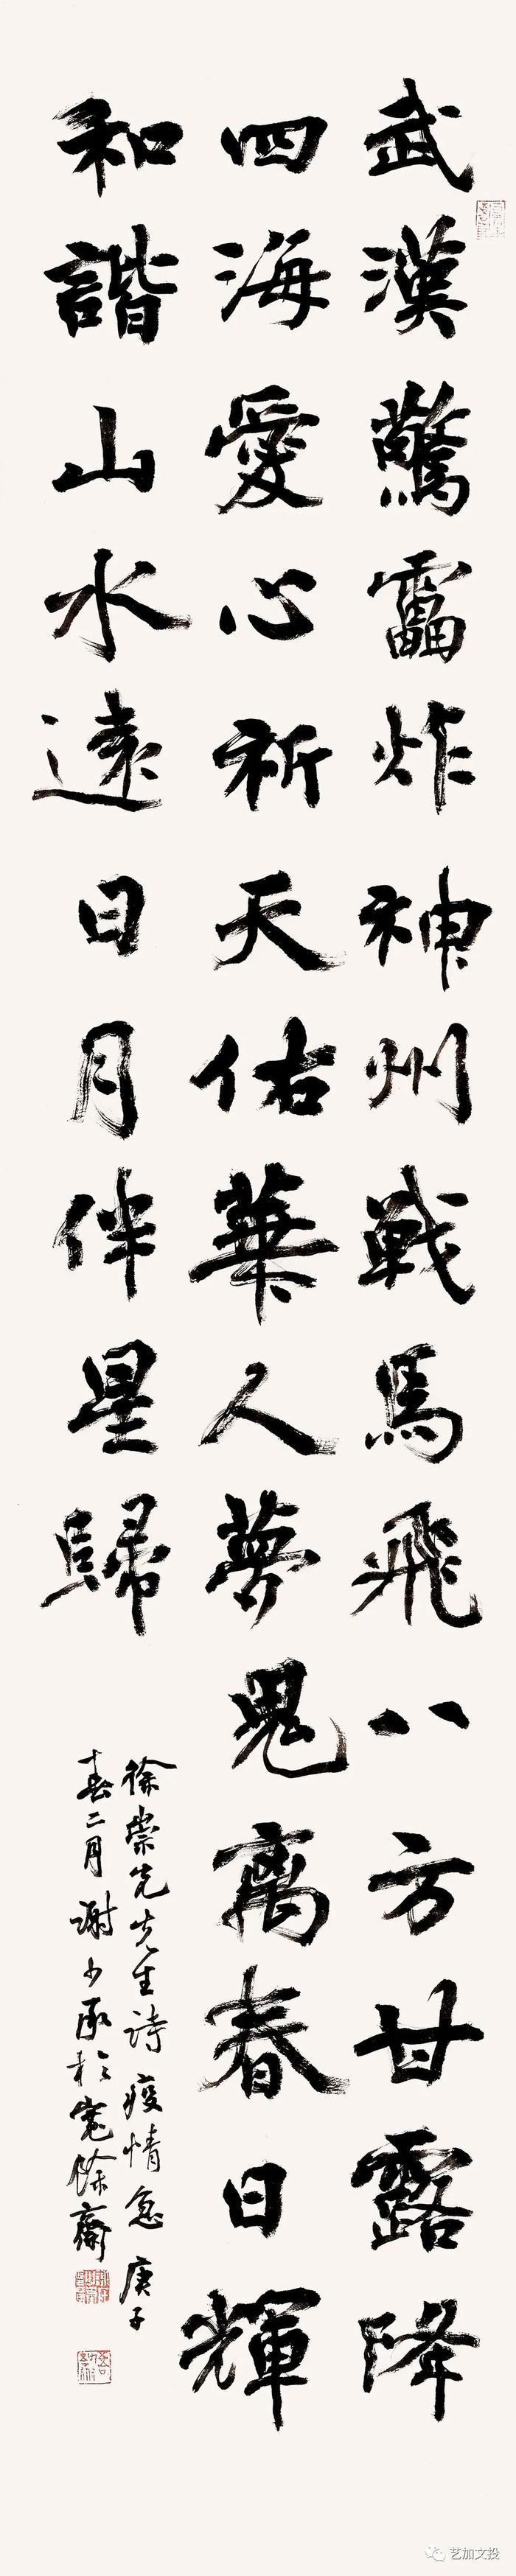 武漢驚靁炸神州戰馬飛八方甘露降
四海愛心祈天佑華人夢鬼離春日輝
和諧山水遠日月伴星歸
徐崇先先生詩疫情急庚子
春二月謝少承於寬除齋
艺加文投